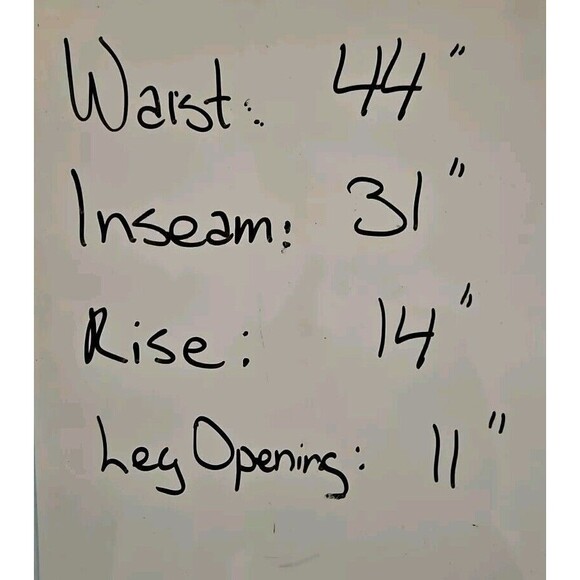 Waist: 44"
Inseam: 31"
Rise: 14"
Leg Opening: 11"